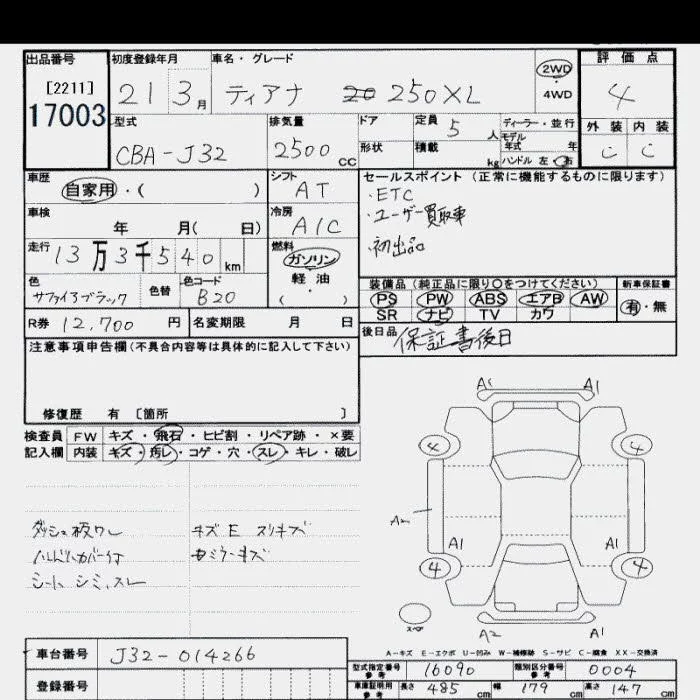 出品番号 初度登録年月 車名・グレード 2WD ・ 4WD 評価点
[2211]
17003
21 3月 ティアナ 250XL 4
型式 排気量 ドア 定員 5人 ディーラー・並行 外装 内装
モデル年式 年
CBA-J32 2500cc 形状 積載 kg ハンドル 左・右 C C
車歴 自家用・( ) シフト AT セールスポイント (正常に機能するものに限ります)
・ETC
・ユーザー買取車
・初出品
車検 年 月( 日) 冷房 A/C
走行 13万3千540km 燃料 ガソリン・軽油・( )
色 サファイアブラック 色替 色コード B20
装備品 (純正品に限り〇をつけてください) 新車保証書
PS PW ABS エアB AW 有・無
SR ナビ TV カワ
R券 12,700円 名変期限 月 日 後日品 保証書後日
注意事項申告欄(不具合内容等は具体的に記入して下さい)
修復歴 有 [箇所 ]
検査員記入欄 FW キズ・飛石・ヒビ割・リペア跡・×要
内装 キズ・汚レ・コゲ・穴・スレ・キレ・破レ
ダッシュ板ワレ キズE スリキズ
ハンドルカバー付
シート シミ、スレ
A1 A1
4 4
A2 A1 A1
4 4
スペア A2 A1
A-キズ E-エクボ U-凹み W-補修跡 S-サビ C-腐食 XX-交換済
車台番号 J32-014266
型式指定番号参考 16090 類別区分番号参考 0004
登録番号
車庫証明用参考 長さ 485cm 幅 179cm 高さ 147cm